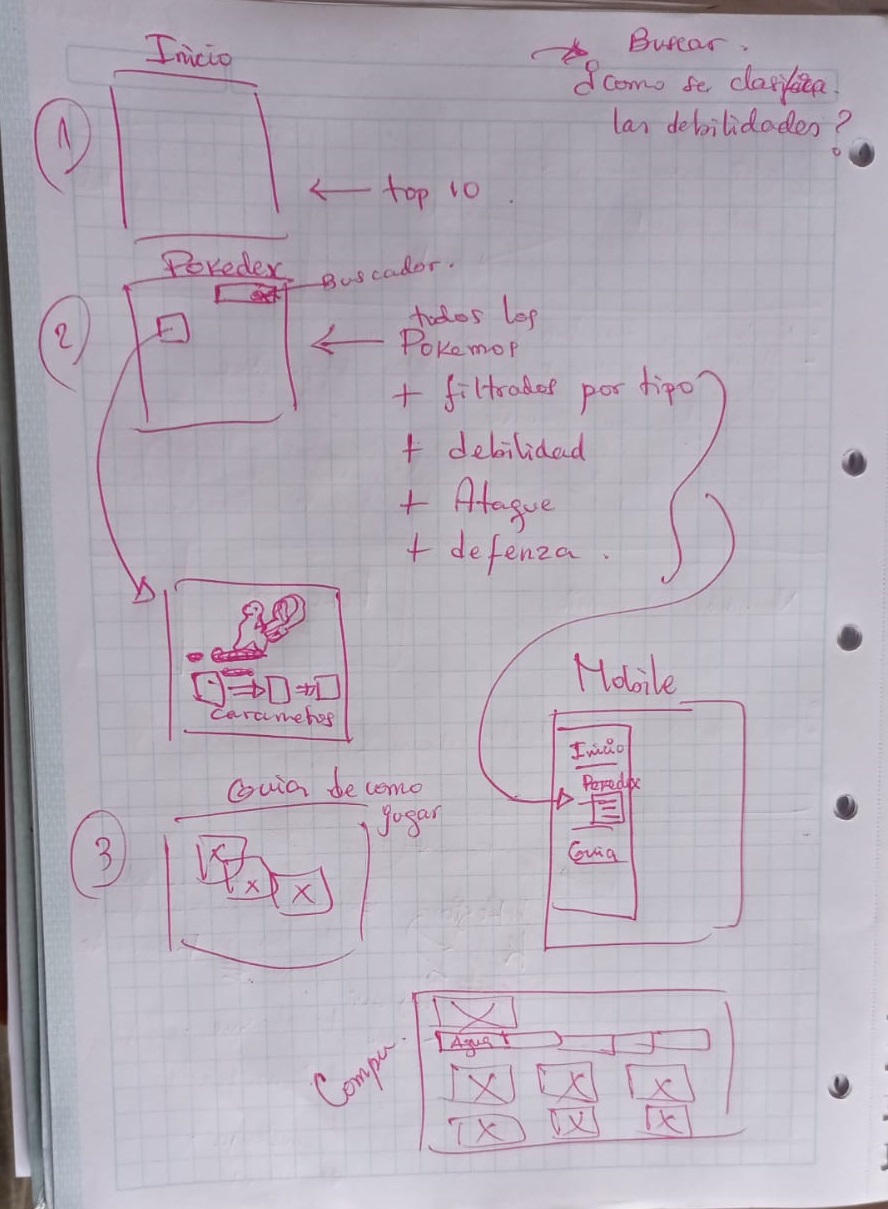 Inicio
→ Buscar.
¿como se clasifica
las debilidades?
1
← top 10.
Pokedex
Buscador.
2
todos los
← Pokemop
+ filtrados por tipo
+ debilidad
+ Ataque
+ defenza.
carametos
Mobile
Inicio
Pokedex
Guia
Guia de como
jugar
3
Compu.
Agua